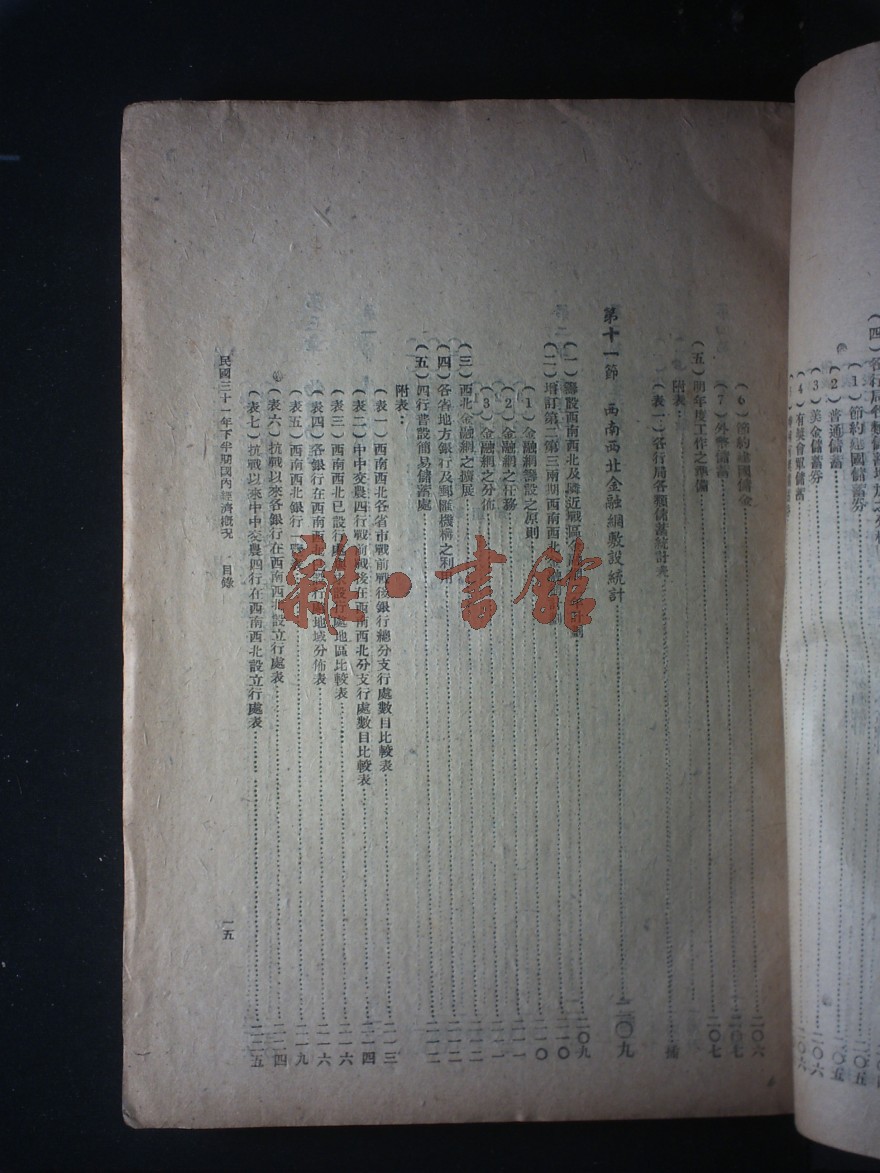 (四)各行局各類儲蓄
(1)節約建國儲蓄券
二〇五
(2)普通儲蓄
二〇五
(3)美金儲蓄券
二〇六
(4)有獎會眾儲蓄
二〇六
(6)節約建國儲金……二〇六
(7)外幣儲蓄……二〇七
(五)明年度工作之準備……二〇七
附表:
(表一)各行局各類儲蓄統計表
第十一節 西南西北金融網敷設統計……二〇九
(一)籌設西南西北及隣近戰區金年計劃……二〇九
(二)增訂第二第三兩期西南西北……二一〇
(1)金融網籌設之原則……二一〇
(2)金融網之任務……二一一
(3)金融網之分佈……二一一
(三)西北金融網之擴展……二一二
(四)各省地方銀行及郵匯機構之利……二一二
(五)四行普設簡易儲蓄處……二一二
附表:
(表一)西南西北各省市戰前戰後銀行總分支行處數目比較表……二一三
(表二)中中交農四行戰前戰後在西南西北分支行處數目比較表……二一四
(表三)西南西北已設行處地區比較表……二一六
(表四)各銀行在西南西地域分佈表……二一六
(表五)西南西北銀行……二一九
(表六)抗戰以來各銀行在西南西北設立行處表……二二四
(表七)抗戰以來中中交農四行在西南西北設立行處表……二二五
民國三十一年下半期國內經濟概況 目錄
一五
雜·書館